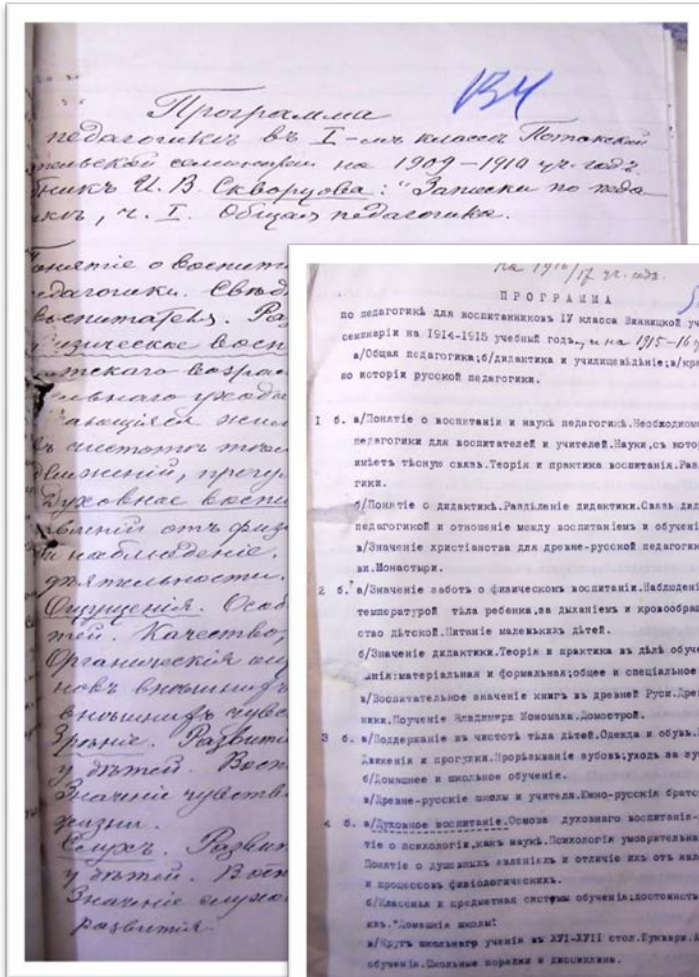 В4
Программа
педагогики въ I-мъ классѣ Потокской
семинаріи на 1909–1910 уч. годъ.
И. В. Скворцова: "Записки по педа
ч. I. Общая педагогика.
о воспит
Свѣд
воспитателя. Ра
физическое восп
возрас
ухода
въ чистотѣ
движеній, прогул
Духовное воспи
отъ физ
наблюденіе.
дѣятельности.
Ощущенія. Особ
тей. Качество,
Органическія
внѣшнихъ
внѣшнихъ чувс
Зрѣніе. Развити
у дѣтей. Восп
Значеніе чувств
жизни.
Слухъ. Развит
у дѣтей. Восп
Значеніе слуха
развитія.
на 1916/17 уч. годъ.
ПРОГРАММА
по педагогикѣ для воспитанниковъ IУ класса Винницкой уч
семинаріи на 1914-1915 учебный годъ, и на 1915-16 у
а/Общая педагогика;б/дидактика и училищевѣдѣніе;в/кра
по исторіи русской педагогики.
1 б. а/Понятіе о воспитаніи и наукѣ педагогикѣ.Необходимо
педагогики для воспитателей и учителей.Науки,съ котор
имѣетъ тѣсную связь.Теорія и практика воспитанія.Раз
гики.
б/Понятіе о дидактикѣ.Раздѣленіе дидактики.Связь дид
педагогикой и отношеніе между воспитаніемъ и обучені
в/Значеніе христіанства для древне-русской педагогик
ви.Монастыри.
2 б. а/Значеніе заботъ о физическомъ воспитаніи.Наблюдені
температурой тѣла ребенка,за дыханіемъ и кровообращ
ство дѣтской.Питаніе маленькихъ дѣтей.
б/Значеніе дидактики.Теорія и практика въ дѣлѣ обуче
анія:матеріальная и формальная;общее и спеціальное
в/Воспитательное значеніе книгъ въ древней Руси.Древ
ники.Поученіе Владимира Мономаха.Домострой.
3 б. а/Поддержаніе въ чистотѣ тѣла дѣтей.Одежда и обувь.
Движенія и прогулки.Прорѣзываніе зубовъ;уходъ за зу
б/Домашнее и школьное обученіе.
в/Древне-русскія школы и учителя.Южно-русскія братс
4 б. а/Духовное воспитаніе.Основа духовнаго воспитанія-
тіе о психологіи,какъ наукѣ.Психологія умозрительна
Понятіе о душевныхъ явленіяхъ и отличіе ихъ отъ явле
и процессовъ физіологическихъ.
б/Классная и предметная системы обученія;достоинств
ихъ."Домашнія школы"
в/Кругъ школьнаго ученія въ ХУІ-ХУІІ стол.Буквари.А
обученія.Школьные порядки и дисциплина.